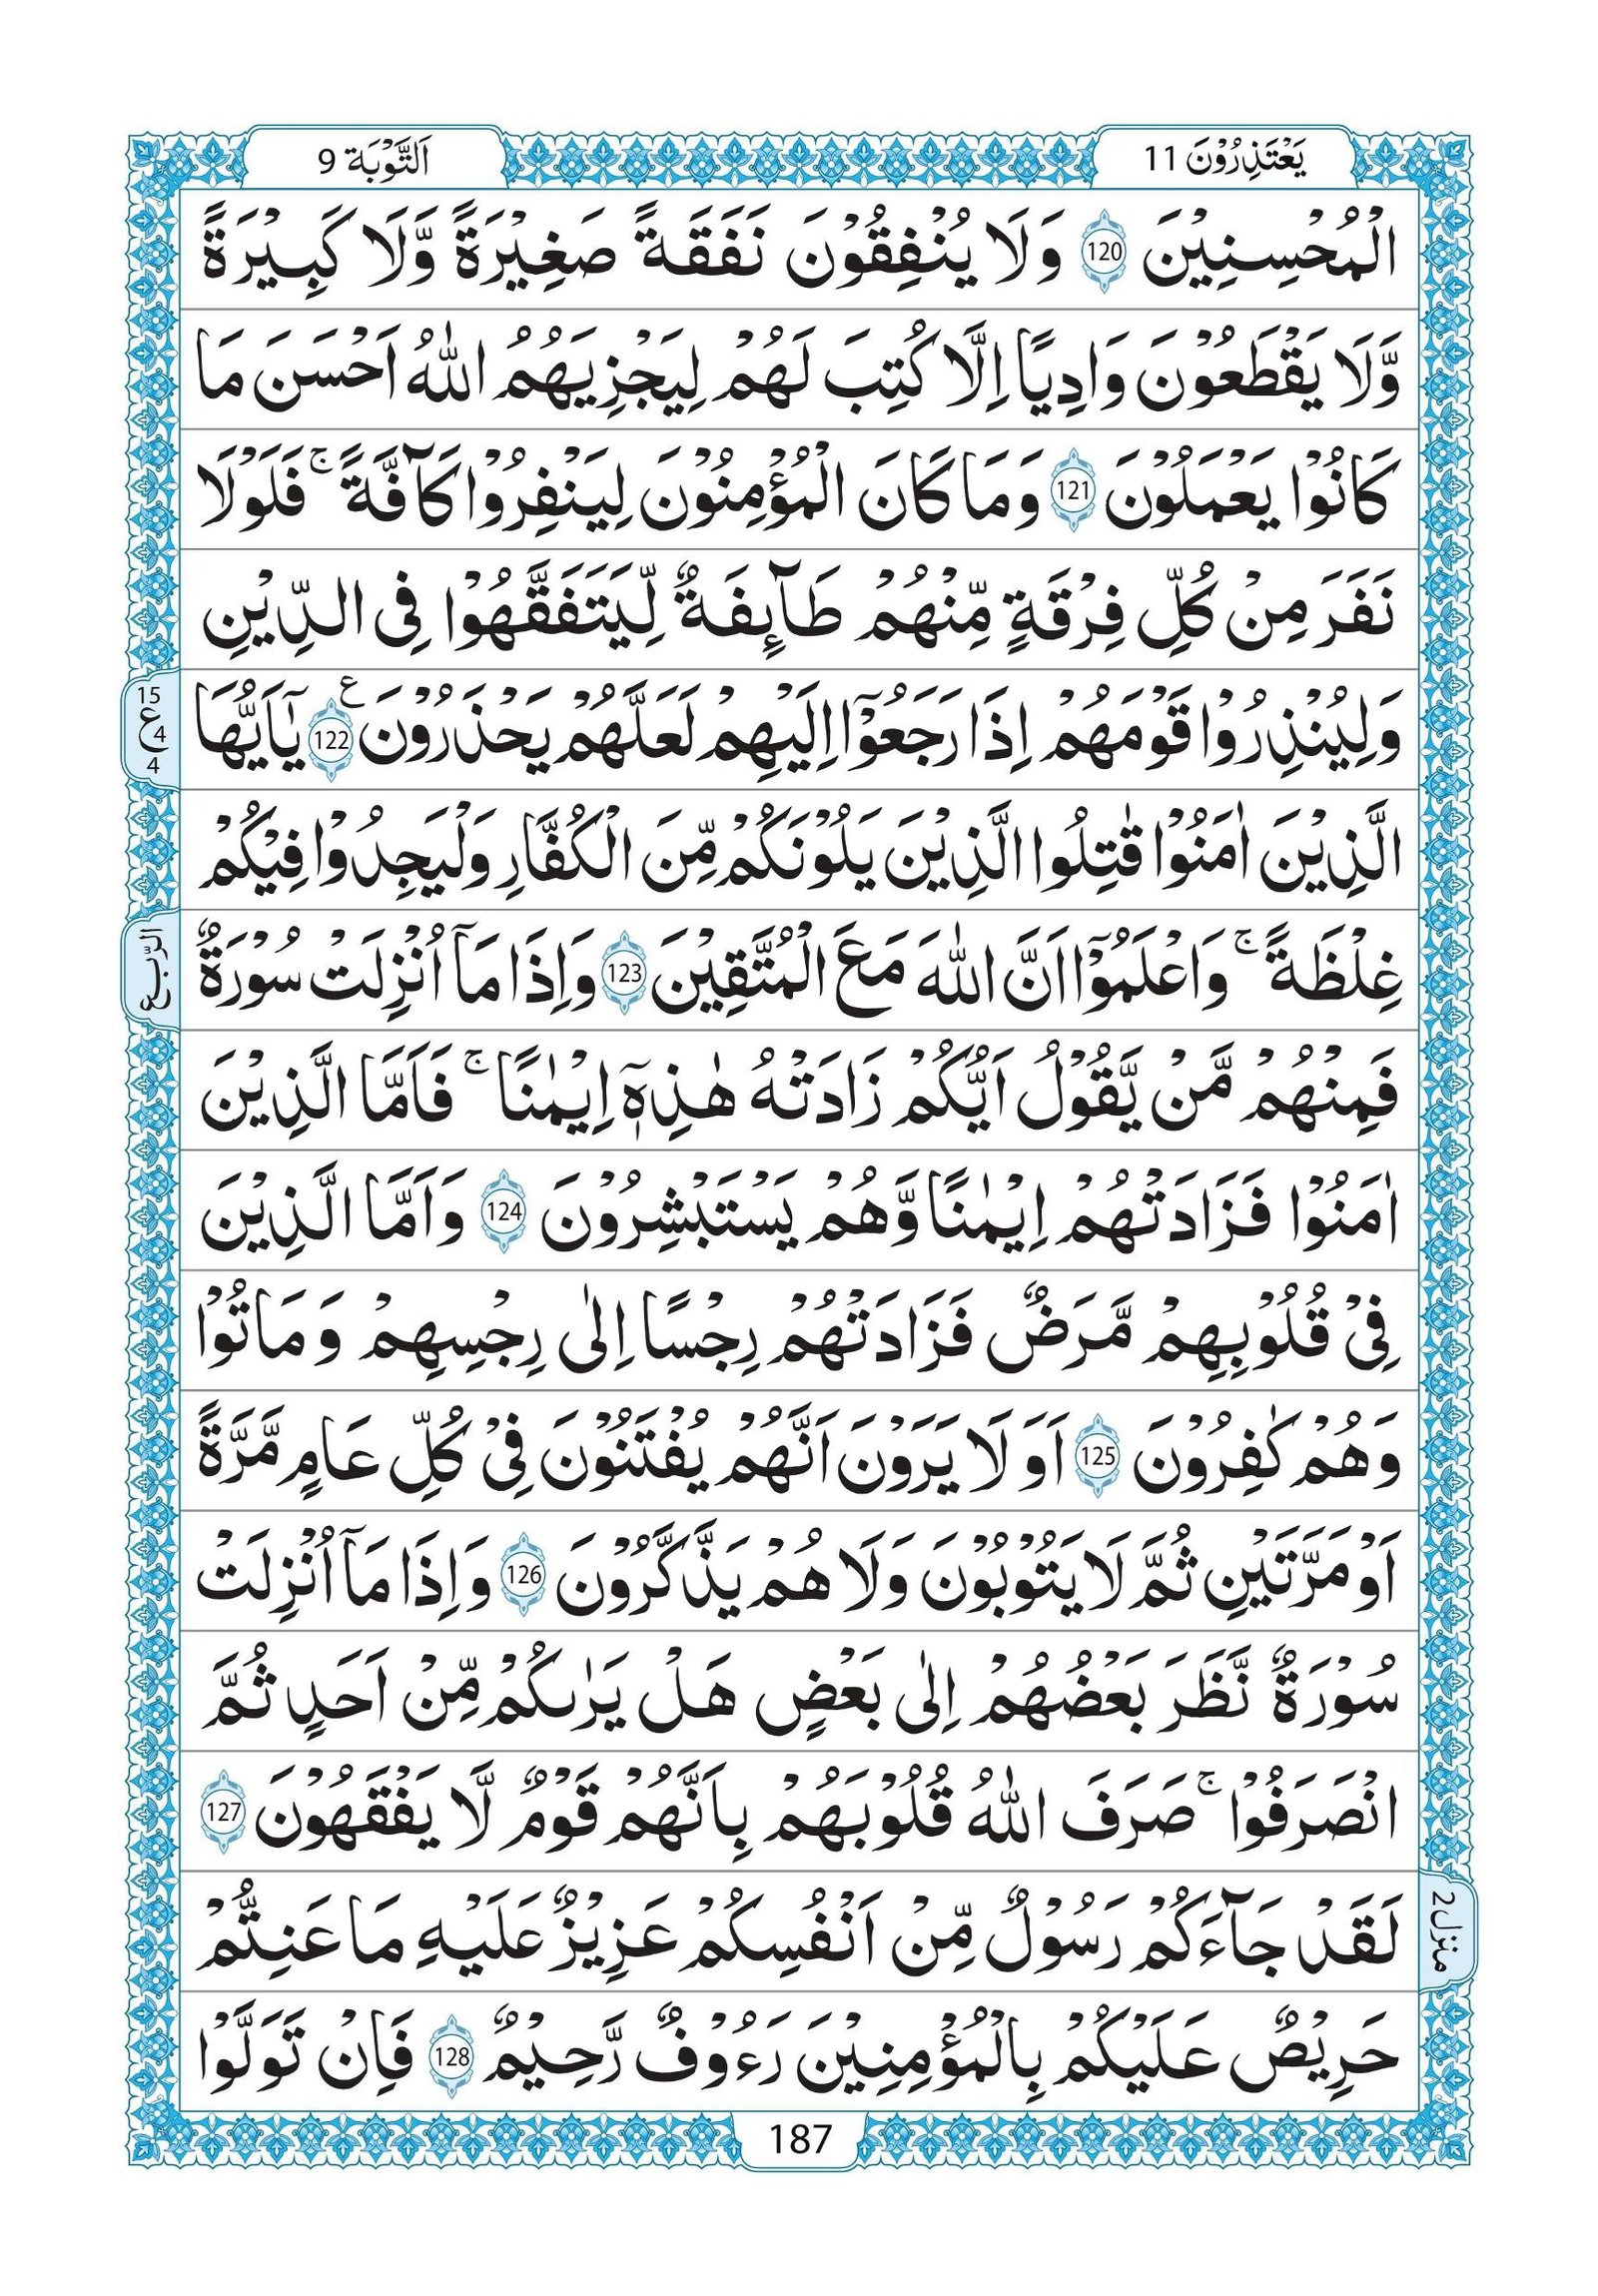 يَعْتَذِرُوْنَ 11
اَلتَّوْبَة 9
الْمُحْسِنِيْنَ 120 وَلَا يُنْفِقُوْنَ نَفَقَةً صَغِيْرَةً وَّلَا كَبِيْرَةً
وَّلَا يَقْطَعُوْنَ وَادِيًا اِلَّا كُتِبَ لَهُمْ لِيَجْزِيَهُمُ اللّٰهُ اَحْسَنَ مَا
كَانُوْا يَعْمَلُوْنَ 121 وَمَا كَانَ الْمُؤْمِنُوْنَ لِيَنْفِرُوْا كَآفَّةً ۚ فَلَوْلَا
نَفَرَ مِنْ كُلِّ فِرْقَةٍ مِّنْهُمْ طَآىِٕفَةٌ لِّيَتَفَقَّهُوْا فِى الدِّيْنِ
وَلِيُنْذِرُوْا قَوْمَهُمْ اِذَا رَجَعُوْٓا اِلَيْهِمْ لَعَلَّهُمْ يَحْذَرُوْنَ ع 122 يٰٓاَيُّهَا
15
ع 4
4
الَّذِيْنَ اٰمَنُوْا قٰتِلُوا الَّذِيْنَ يَلُوْنَكُمْ مِّنَ الْكُفَّارِ وَلْيَجِدُوْا فِيْكُمْ
غِلْظَةً ۚ وَاعْلَمُوْٓا اَنَّ اللّٰهَ مَعَ الْمُتَّقِيْنَ 123 وَاِذَا مَآ اُنْزِلَتْ سُوْرَةٌ
الرّبع
فَمِنْهُمْ مَّنْ يَّقُوْلُ اَيُّكُمْ زَادَتْهُ هٰذِهٖٓ اِيْمٰنًا ۚ فَاَمَّا الَّذِيْنَ
اٰمَنُوْا فَزَادَتْهُمْ اِيْمٰنًا وَّهُمْ يَسْتَبْشِرُوْنَ 124 وَاَمَّا الَّذِيْنَ
فِيْ قُلُوْبِهِمْ مَّرَضٌ فَزَادَتْهُمْ رِجْسًا اِلٰى رِجْسِهِمْ وَمَاتُوْا
وَهُمْ كٰفِرُوْنَ 125 اَوَلَا يَرَوْنَ اَنَّهُمْ يُفْتَنُوْنَ فِيْ كُلِّ عَامٍ مَّرَّةً
اَوْ مَرَّتَيْنِ ثُمَّ لَا يَتُوْبُوْنَ وَلَا هُمْ يَذَّكَّرُوْنَ 126 وَاِذَا مَآ اُنْزِلَتْ
سُوْرَةٌ نَّظَرَ بَعْضُهُمْ اِلٰى بَعْضٍ هَلْ يَرٰىكُمْ مِّنْ اَحَدٍ ثُمَّ
انْصَرَفُوْا ۚ صَرَفَ اللّٰهُ قُلُوْبَهُمْ بِاَنَّهُمْ قَوْمٌ لَّا يَفْقَهُوْنَ 127
لَقَدْ جَآءَكُمْ رَسُوْلٌ مِّنْ اَنْفُسِكُمْ عَزِيْزٌ عَلَيْهِ مَا عَنِتُّمْ
منزل 2
حَرِيْصٌ عَلَيْكُمْ بِالْمُؤْمِنِيْنَ رَءُوْفٌ رَّحِيْمٌ 128 فَاِنْ تَوَلَّوْا
187